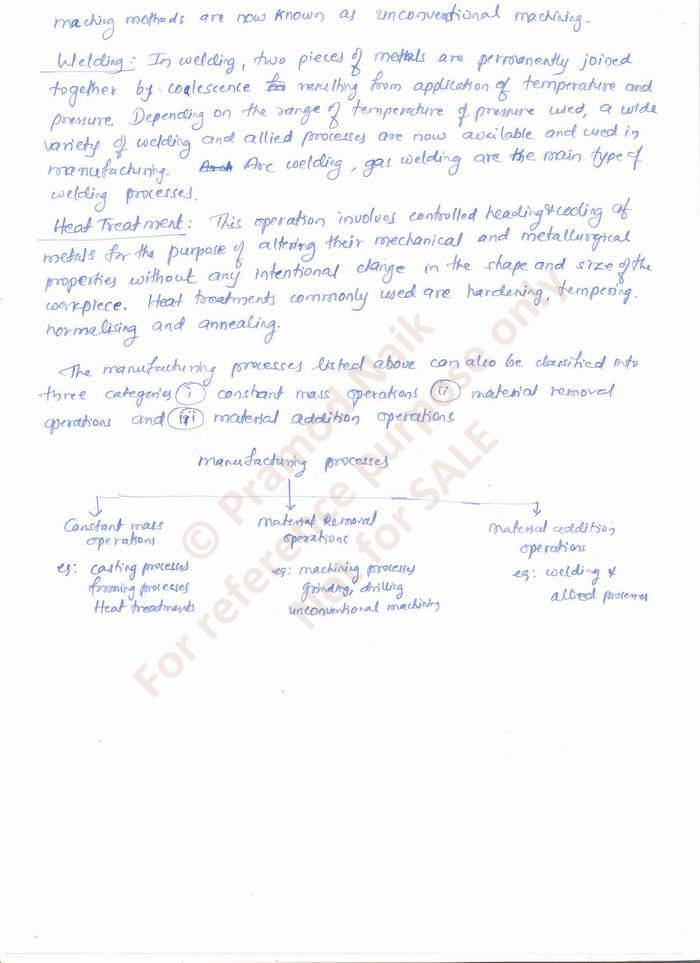 maching methods are now known as unconventional machining.
Welding: In welding, two pieces of metals are permanently joined
together by coalescence resulting from application of temperature and
pressure. Depending on the range of temperature of pressure used, a wide
variety of welding and allied processes are now available and used in
manufacturing. Arc welding, gas welding are the main type of
welding processes.
Heat Treatment: This operation involves controlled heading & cooling of
metals for the purpose of altering their mechanical and metallurgical
properties without any intentional change in the shape and size of the
workpiece. Heat treatments commonly used are hardening, tempering.
normalising and annealing.
The manufacturing processes listed above can also be classified into
three categories (i) constant mass operations (ii) material removal
operations and (iii) material addition operations
manufacturing processes
Constant mass operations
eg: casting processes
forming processes
Heat treatments
material Removal operations
eg: machining processes
grinding, drilling
unconventional machining
material addition operations
eg: welding &
allied processes
© Pramod Naik
For reference purpose only
Not for SALE